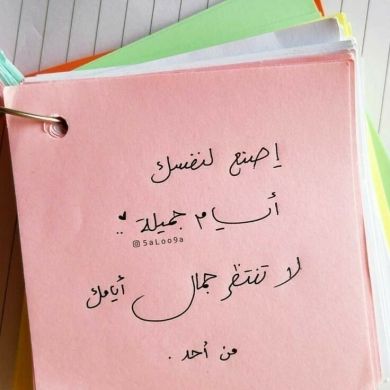 إصنع لنفسك
أيام جميلة ♥
5aLoo9a
لا تنتظر جمال أيامك
من أحد .